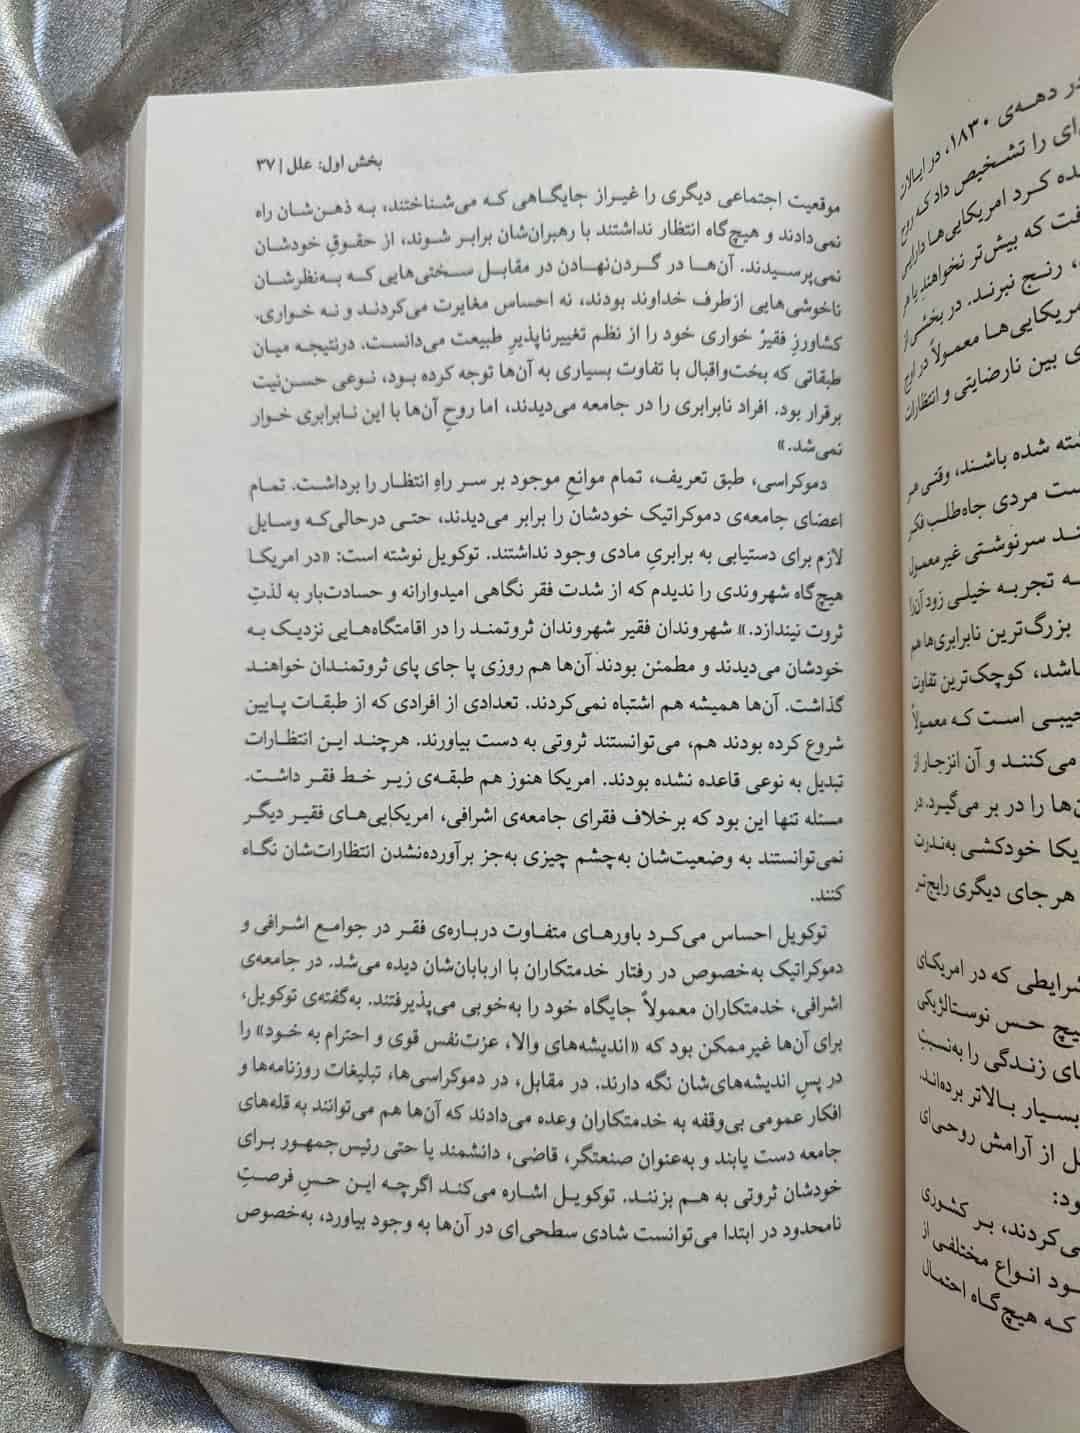 بخش اول: علل | ۳۷
موقعیت اجتماعی دیگری را غیراز جایگاهی که می‌شناختند، به ذهن‌شان راه
نمی‌دادند و هیچ‌گاه انتظار نداشتند با رهبران‌شان برابر شوند، از حقوقِ خودشان
نمی‌پرسیدند. آن‌ها در گردن‌نهادن در مقابل سختی‌هایی که به‌نظرشان
ناخوشی‌هایی ازطرف خداوند بودند، نه احساس مغایرت می‌کردند و نه خواری.
کشاورزِ فقیرْ خواری خود را از نظم تغییرناپذیرِ طبیعت می‌دانست. درنتیجه میان
طبقاتی که بخت‌واقبال با تفاوت بسیاری به آن‌ها توجه کرده بود، نوعی حسن‌نیت
برقرار بود. افراد نابرابری را در جامعه می‌دیدند، اما روحِ آن‌ها با این نابرابری خوار
نمی‌شد.»
دموکراسی، طبق تعریف، تمام موانعِ موجود بر سر راهِ انتظار را برداشت. تمام
اعضای جامعه‌ی دموکراتیک خودشان را برابر می‌دیدند، حتی درحالی‌که وسایل
لازم برای دستیابی به برابریِ مادی وجود نداشتند. توکویل نوشته است: «در امریکا
هیچ‌گاه شهروندی را ندیدم که از شدت فقر نگاهی امیدوارانه و حسادت‌بار به لذتِ
ثروت نیندازد.» شهروندان فقیر شهروندان ثروتمند را در اقامتگاه‌هایی نزدیک به
خودشان می‌دیدند و مطمئن بودند آن‌ها هم روزی پا جای پای ثروتمندان خواهند
گذاشت. آن‌ها همیشه هم اشتباه نمی‌کردند. تعدادی از افرادی که از طبقات پایین
شروع کرده بودند هم، می‌توانستند ثروتی به دست بیاورند. هرچند این انتظارات
تبدیل به نوعی قاعده نشده بودند. امریکا هنوز هم طبقه‌ی زیر خط فقر داشت.
مسئله تنها این بود که برخلاف فقرای جامعه‌ی اشرافی، امریکایی‌های فقیر دیگر
نمی‌توانستند به وضعیت‌شان به‌چشم چیزی به‌جز برآورده‌نشدن انتظارات‌شان نگاه
کنند.
توکویل احساس می‌کرد باورهای متفاوت درباره‌ی فقر در جوامع اشرافی و
دموکراتیک به‌خصوص در رفتار خدمتکاران با اربابان‌شان دیده می‌شد. در جامعه‌ی
اشرافی، خدمتکاران معمولاً جایگاه خود را به‌خوبی می‌پذیرفتند. به‌گفته‌ی توکویل،
برای آن‌ها غیرممکن بود که «اندیشه‌های والا، عزت‌نفس قوی و احترام به خود» را
در پسِ اندیشه‌های‌شان نگه دارند. در مقابل، در دموکراسی‌ها، تبلیغات روزنامه‌ها و
افکار عمومی بی‌وقفه به خدمتکاران وعده می‌دادند که آن‌ها هم می‌توانند به قله‌های
جامعه دست یابند و به‌عنوان صنعتگر، قاضی، دانشمند یا حتی رئیس‌جمهور برای
خودشان ثروتی به هم بزنند. توکویل اشاره می‌کند اگرچه این حسِ فرصتِ
نامحدود در ابتدا می‌توانست شادی سطحی‌ای در آن‌ها به وجود بیاورد، به‌خصوص
در دهه‌ی ۱۸۳۰، در ایالات
را تشخیص داد که روح
کرد امریکایی‌ها دارایی
که بیش‌تر نخواهند یا هر
رنج نبرند. در بخشی از
امریکایی‌ها معمولاً در اوج
بین نارضایتی و انتظارات
شده باشند، وقتی هر
مردی جاه‌طلب فکر
سرنوشتی غیرمعمول
تجربه خیلی زود آن‌را
بزرگ‌ترین نابرابری‌ها هم
کوچک‌ترین تفاوت
است که معمولاً
می‌کنند و آن انزجار از
را در بر می‌گیرد. در
خودکشی به‌ندرت
هر جای دیگری رایج‌تر
شرایطی که در امریکای
هیچ حس نوستالژیکی
زندگی را به‌نسبتِ
بسیار بالاتر برده‌اند.
از آرامش روحی‌ای
بر کشوری
انواع مختلفی از
که هیچ‌گاه احتمال